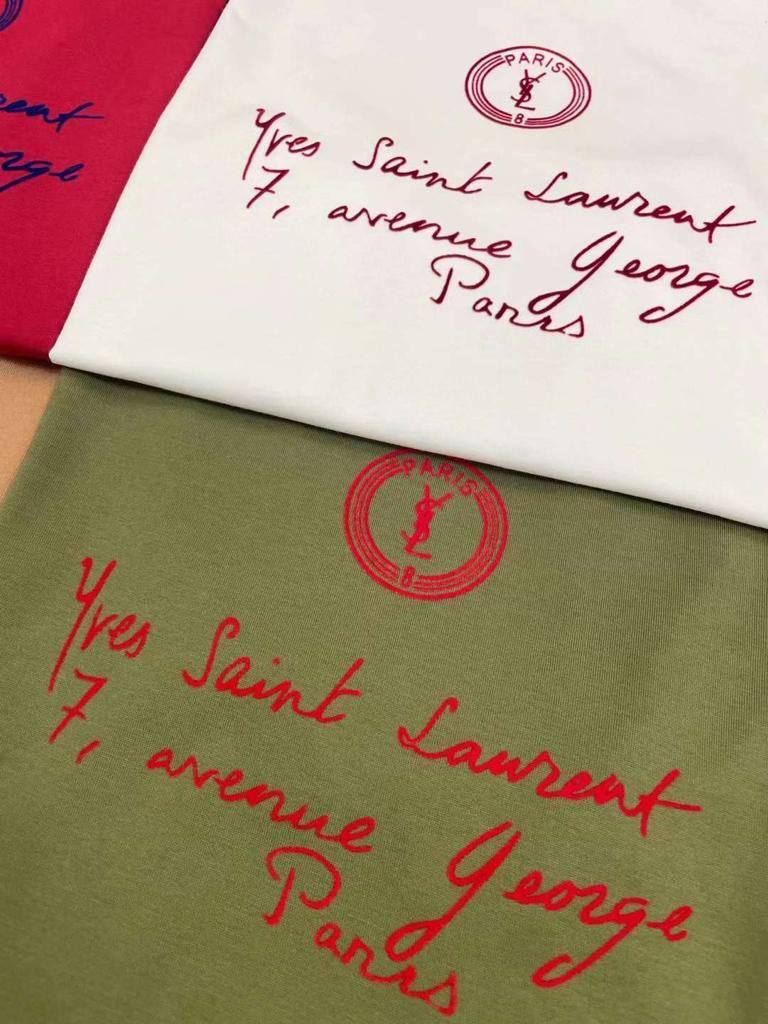 rent
rge
PARIS
YSL
8
Yves Saint Laurent
7, avenue George
Paris
PARIS
YSL
8
Yves Saint Laurent
7, avenue George
Paris